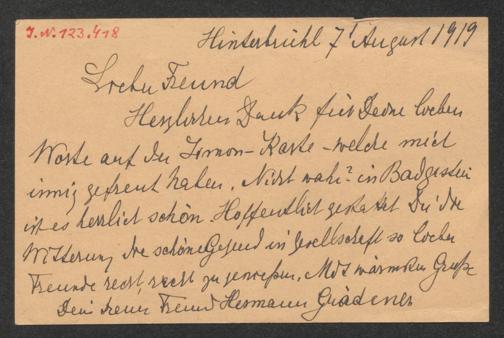 J.N. 123.418
Hinterbrühl 7t August 1919
Lieber Freund
Herzlichen Dank für Deine lieben
Worte auf der Simon-Karte - welche mich
innig gefreut haben. Nicht wahr? in Badgastein
ist es herrlich schön. Hoffentlich gestattet Dir die
Witterung die schöne Gegend in Gesellschaft so lieber
Freunde recht, recht zu genießen. Mit wärmsten Grüße
Dein treuer Freund Hermann Grädener